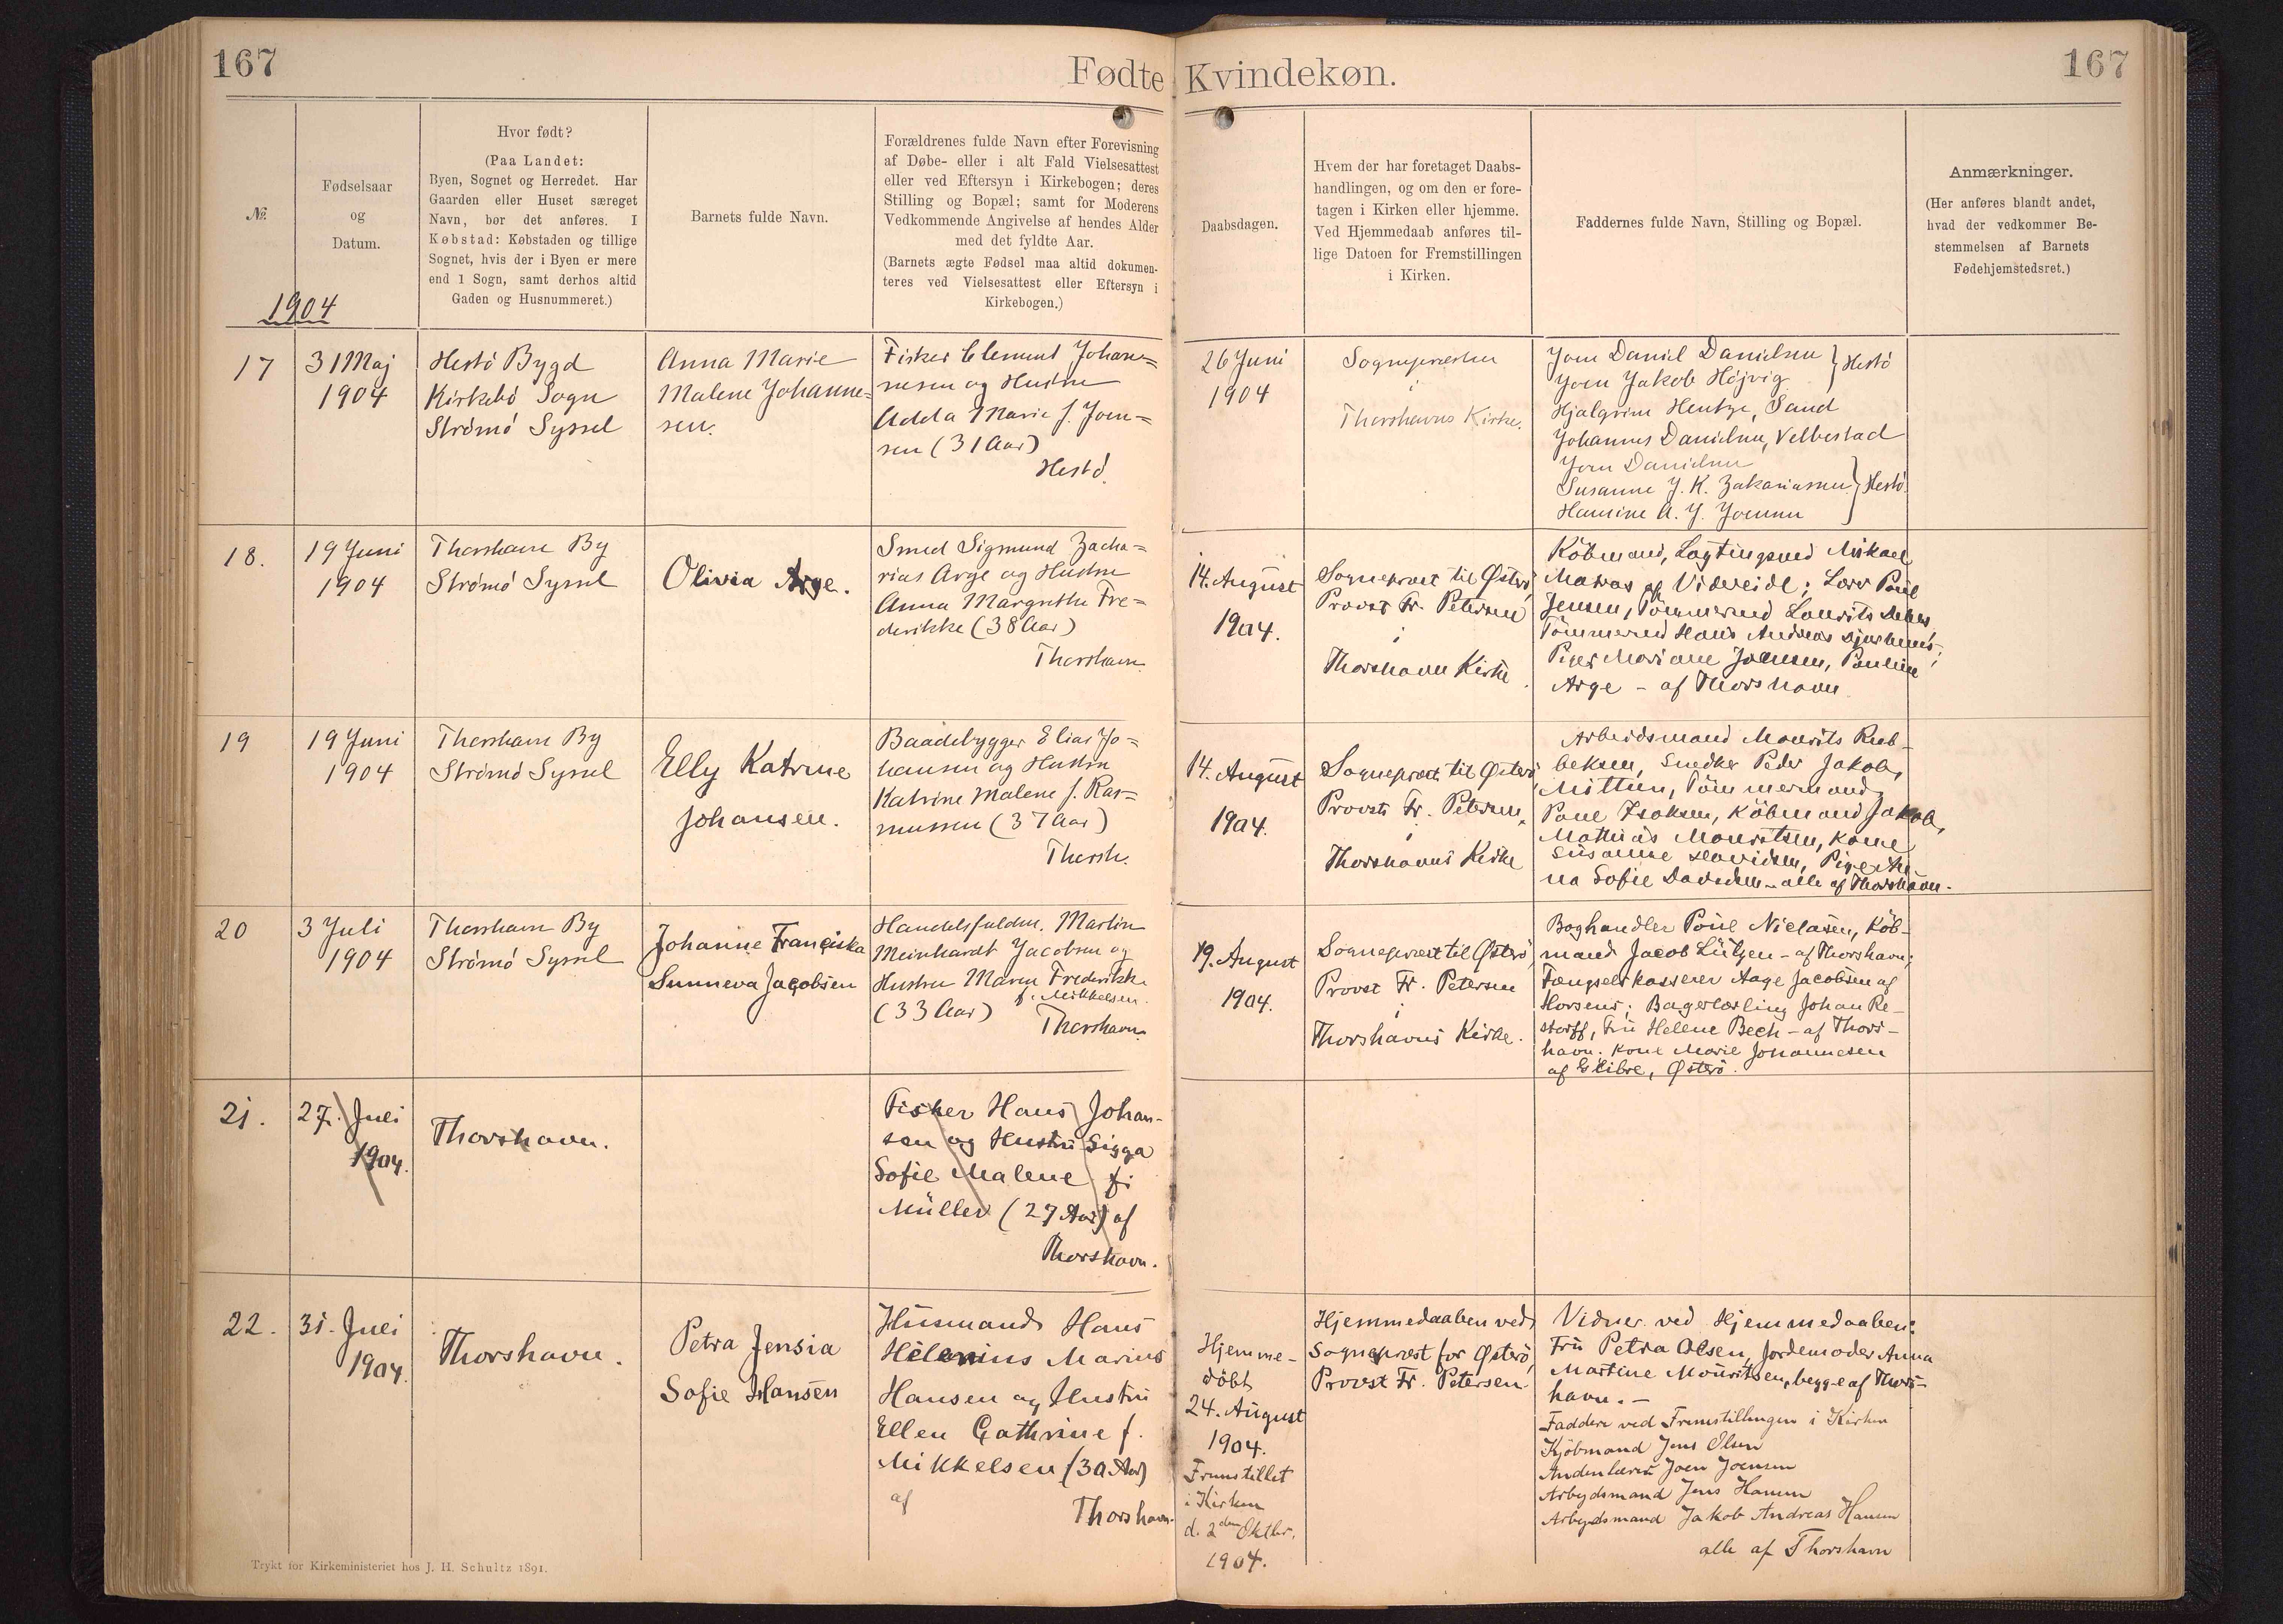 167
Fødte
Kvindekøn.
167
№.
Fødselsaar
og
Datum.
Hvor født?
(Paa Landet:
Byen, Sognet og Herredet. Har
Gaarden eller Huset særeget
Navn, bør det anføres. I
Købstad: Købstaden og tillige
Sognet, hvis der i Byen er mere
end 1 Sogn, samt derhos altid
Gaden og Husnummeret.)
Barnets fulde Navn.
Forældrenes fulde Navn efter Forevisning
af Døbe- eller i alt Fald Vielsesattest
eller ved Eftersyn i Kirkebogen; deres
Stilling og Bopæl; samt for Moderens
Vedkommende Angivelse af hendes Alder
med det fyldte Aar.
(Barnets ægte Fødsel maa altid dokumen-
teres ved Vielsesattest eller Eftersyn i
Kirkebogen.)
Daabsdagen.
Hvem der har foretaget Daabs-
handlingen, og om den er fore-
tagen i Kirken eller hjemme.
Ved Hjemmedaab anføres til-
lige Datoen for Fremstillingen
i Kirken.
Faddernes fulde Navn, Stilling og Bopæl.
Anmærkninger.
(Her anføres blandt andet,
hvad der vedkommer Be-
stemmelsen af Barnets
Fødehjemstedsret.)
1904
17
31 Maj
1904
Hestö Bygd
Kirkebö Sogn
Strömö Syssel
Anna Marie
Malene Johanne=
sen.
Fisker Clement Johan=
nesen og Hustru
Adda Marie f. Joen=
sen (31 Aar)
Hestö.
26 Juni
1904
Sognepræsten
i
Thorshavns Kirke.
Joen Daniel Danielsen
Joen Jakob Höjvig
} Hestö
Hjalgrim Hentze, Sand
Johannes Danielsen, Velbestad
Joen Danielsen
Susanne J. K. Zakariasen
} Hestö.
Hansine A. J. Joensen
18.
19 Juni
1904
Thorshavn By
Strömö Syssel
Olivia Arge.
Smed Sigmund Zacha=
rias Arge og Hustru
Anna Margrethe Fre=
derikke (38 Aar)
Thorshavn
14. August
1904.
Sognepræst til Østerö,
Provst Fr. Petersen
i
Thorshavn Kirke.
Köbmand, Lagtingsmd Mikael
Matras af Videreide; Lærer Poul
Jensen, Tömmermd Lourits Debes
Tömmermd Hans Andreas Djurhuus;
Piger Mariane Joensen, Pauline
Arge - af Thorshavn
19
19 Juni
1904
Thorshavn By
Strömö Syssel
Elly Katrine
Johansen.
Baadebygger Elias Jo=
hansen og Hustru
Katrine Malene f. Ras=
mussen (37 Aar)
Thorsh.
14. August
1904.
Sognepræst til Østerö,
Provst Fr. Petersen,
i
Thorshavns Kirke
Arbeidsmand Mourits Reb-
beksen, Snedker Peder Jakob,
Mitten, Tömmermand
Poul Isaksen, Köbmand Jakob,
Mathias Mouritsen, Kone
Susanne Davidsen, Pige An
na Sofie Davidsen - alle af Thorshavn.
20
3 Juli
1904
Thorshavn By
Strömö Syssel
Johanne Franciska
Sunneva Jacobsen
Handelsfuldm. Martin
Meinhardt Jacobsen og
Hustru Maren Frederikke
f. Mikkelsen
(33 Aar)
Thorshavn.
19. August
1904.
Sognepræst til Østerö,
Provst Fr. Petersen
i
Thorshavns Kirke.
Boghandler Poul Niclasen, Köb-
mand Jacob Lützen - af Thorshavn;
Fængselskasserer Aage Jacobsen af
Horsens; Bagerlærling Johan Re-
storff, Fru Helene Bech - af Thors-
havn. Kone Marie Johannesen
af Glibre, Østerö.
21.
27. Juli
1904.
Thorshavn.
Fisker Hans Johan-
sen og Hustru Sigga
Sofie Malene f.
Müller (27 Aar) af
Thorshavn.
22.
31. Juli
1904.
Thorshavn.
Petra Jensia
Sofie Hansen
Husmand Hans
Helenius Marius
Hansen og Hustru
Ellen Cathrine f.
Mikkelsen (30 Aar)
af
Thorshavn.
Hjemme-
döbt
24. August
1904.
Fremstillet
i Kirken
d. 2den Oktbr.
1904.
Hjemmedaaben ved
Sognepræst for Østerö,
Provst Fr. Petersen.
Vidner ved Hjemmedaaben:
Fru Petra Olsen, Jordemoder Anna
Martine Mouritsen, begge af Thors-
havn. -
Faddere ved Fremstillingen i Kirken
Kjöbmand Jens Olsen
Andenlærer Joen Joensen
Arbejdsmand Jens Hansen
Arbejdsmand Jakob Andreas Hansen
alle af Thorshavn
Trykt for Kirkeministeriet hos J. H. Schultz 1891.